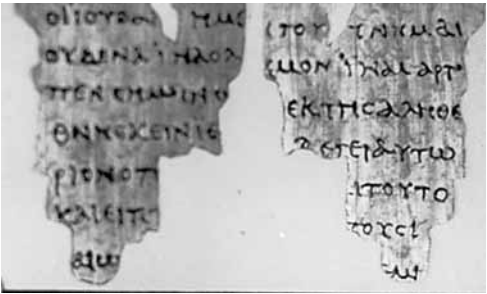 ΟΙΙΟΥΔΑΙ ΗΜΕ
ΟΥΔΕΝΑΪΝΑΟΛΟ
ΠΕΝϹΗΜΑΙΝΩ
ΘΝΗϹΚΕΙΝΙϹ
ΡΙΟΝΟΠ
ΚΑΙΕΙΠ
ΑΙΩ
ΤΟΥ ΝΗΜΑΙ
ϹΜΟΝΪΝΑΜΑΡΤΥ
ΕΚΤΗϹΑΛΗΘΕ
ΛΕΓΕΙΑΥΤΩ
ΙΤΟΥΤΟ
ΤΟΥϹΙ
ΜΙ